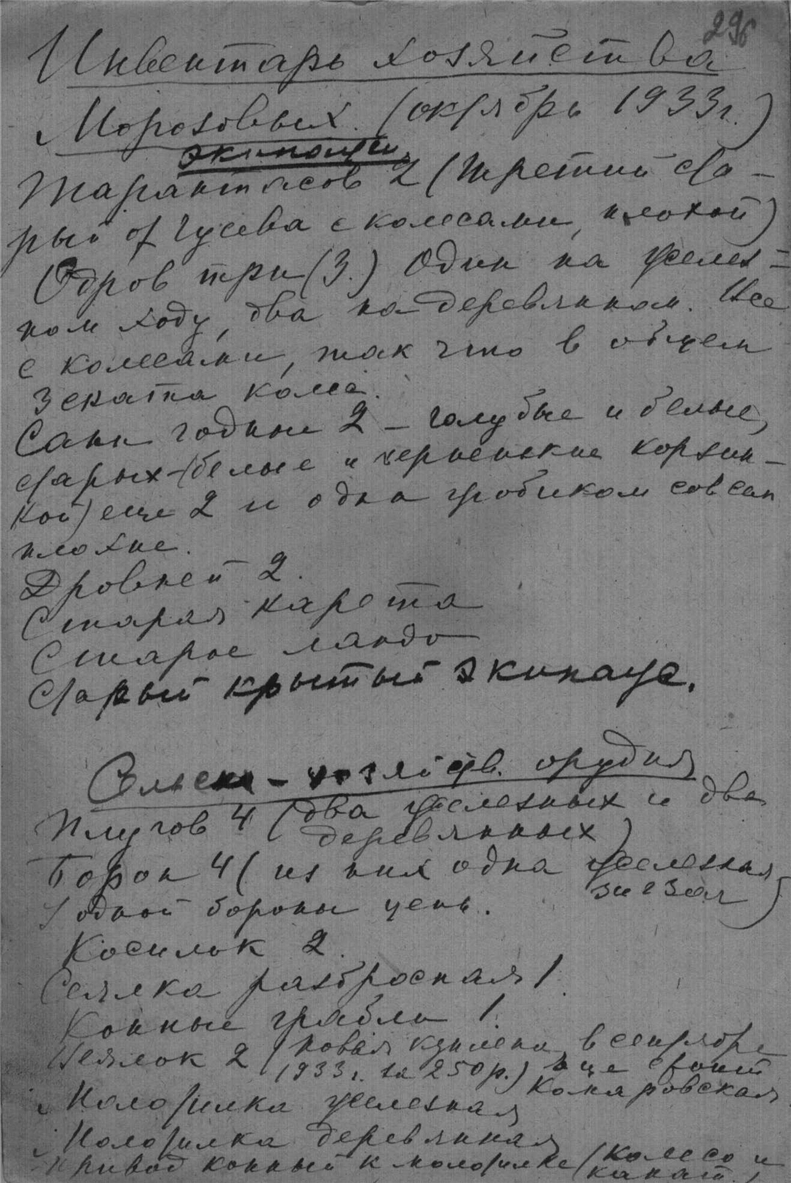 296
Инвентарь хозяйства
Морозовых. (октябрь 1933 г.)
Экипажи
Тарантасов 2 (третий ста-
рый от Гусева с колесами, плохой)
Одров три (3.) Один на желез-
ном ходу, два на деревянном. Все
с колесами, так что в общем
3 ската колес.
Сани годные 2 – голубые и белые,
старых – (белые и черненские корзин-
кой) еще 2 и одна гробиком совсем
плохие.
Дровней 2.
Старая карета
Старое ландо
Старый крытый экипаж.
Сельско-хозяйств. орудия
Плугов 4 (два железных и два
деревянных)
Борон 4 (из них одна железная
зигзаг)
У одной бороны цепь.
Косилок 2.
Сеялка разбросная 1.
Конные грабли 1.
Веялок 2 (новая куплена в сентябре
1933 г. за 250 р.) еще стоит
Комаровская
Молотилка железная
Молотилка деревянная
Привод конный к молотилке (колесо и
канат.)